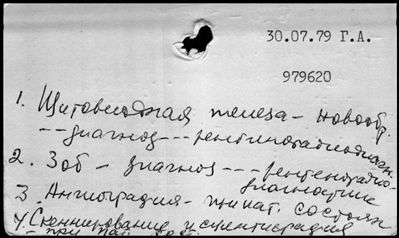 30.07.79 Г.А.
979620
1. Щитовидная железа - новообр.
-- диагноз --- рентгенорадиодиагн.
2. Зоб - диагноз --- рентгенорадио-
диагностике
3. Ангиография - при пат. состоян
4. Сканирование и сцинтиграфия
- при пат. сост.